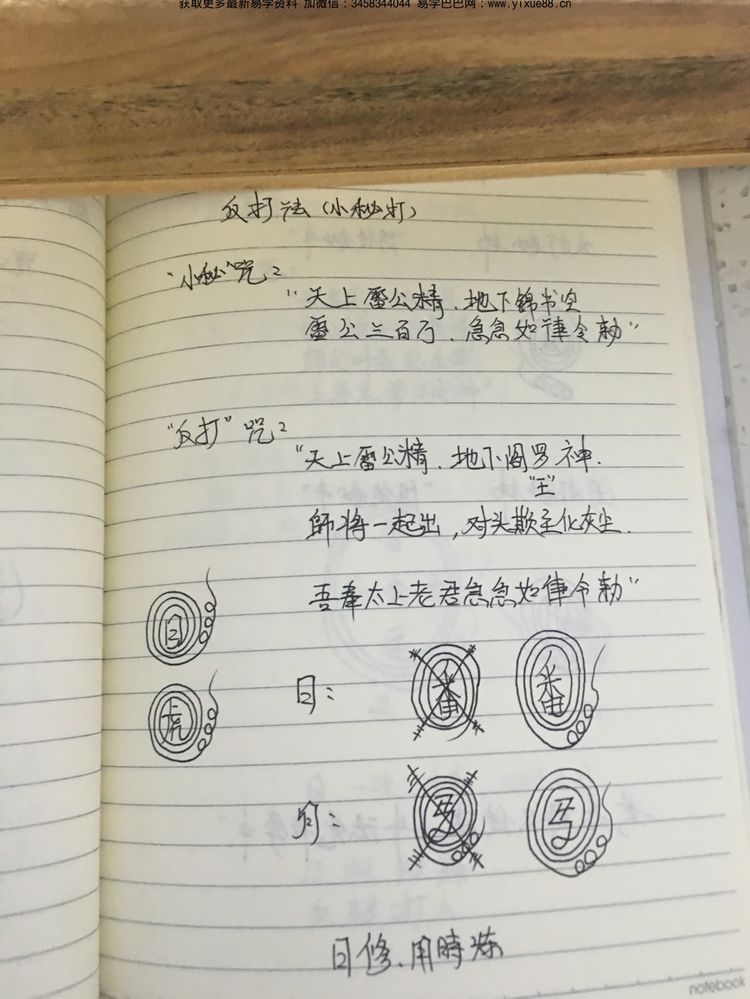 获取更多最新易学资料 加微信：3458344044 易学巴巴网：www.yixue88.cn
反打法（小秘打）
"小秘"咒：
"天上雷公精．地下锦书空
雷公三百万．急急如律令勅"
"反打"咒：
"天上雷公精．地下阎罗神．
"王"
師将一起出，对头欺主化灰尘．
吾奉太上老君急急如律令勅"
日
虎
日：
番
番
日修．用時炼
notebook